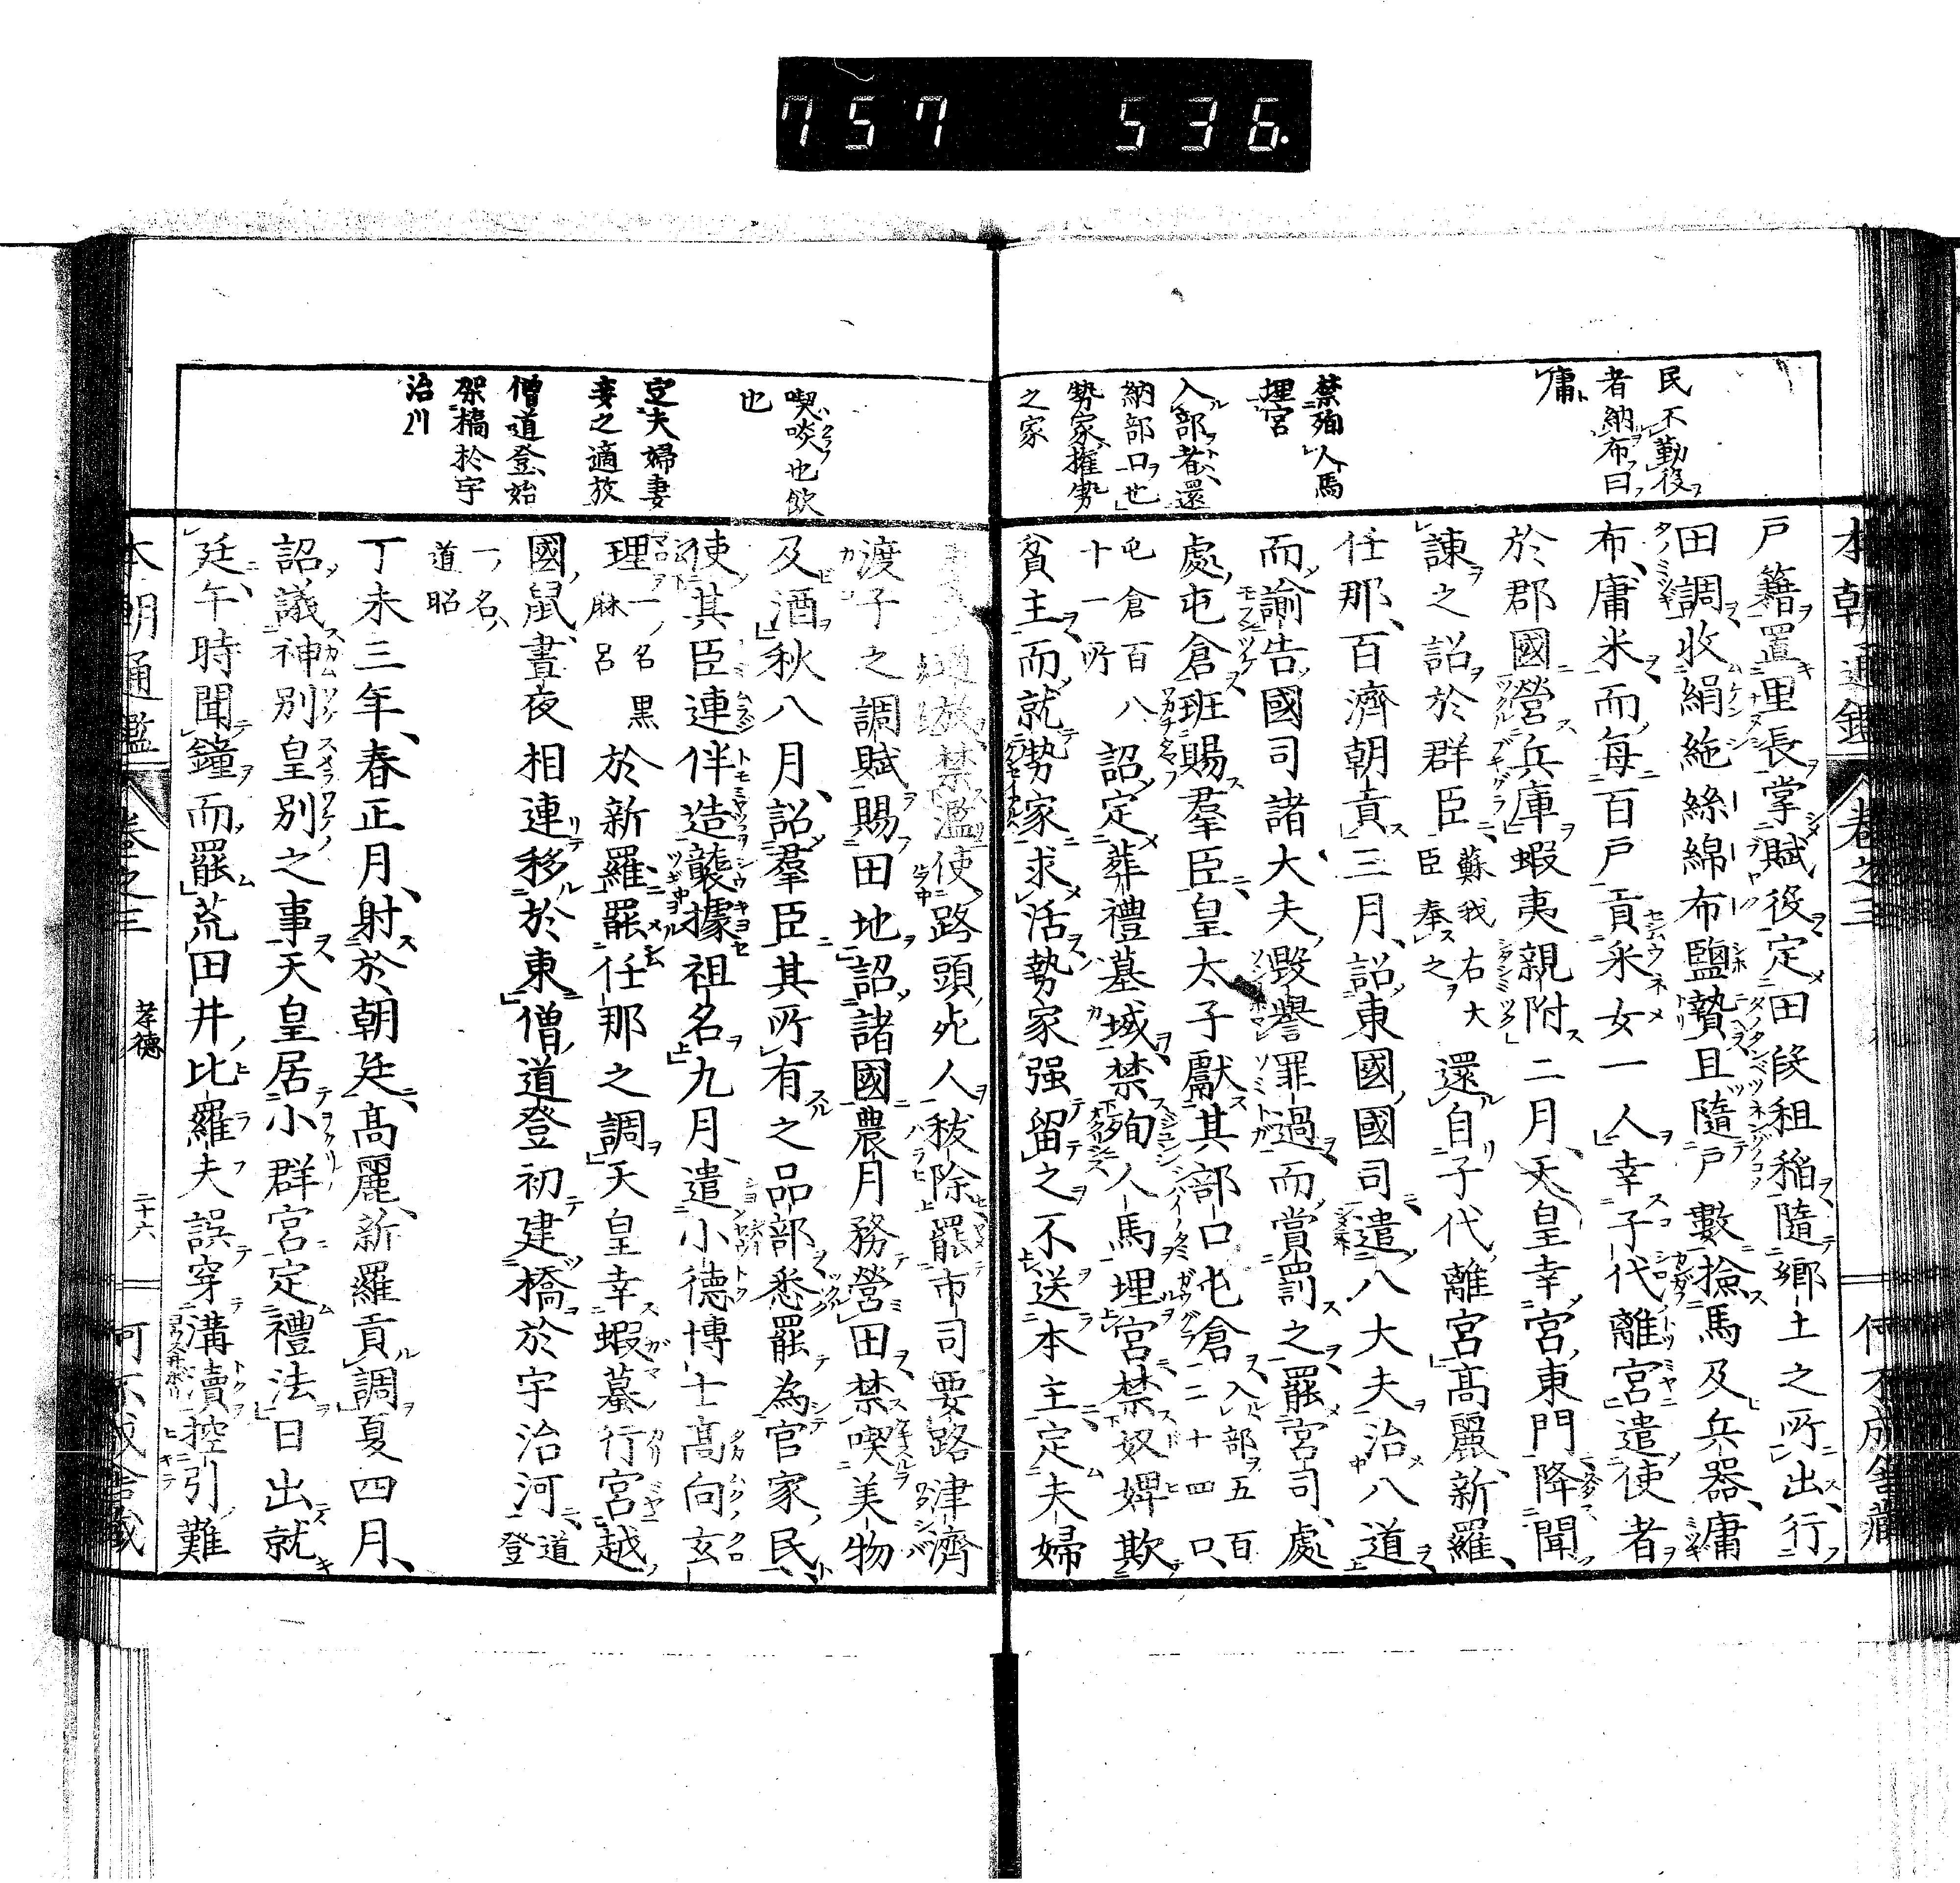 757 536.
本朝通鑑 卷之三
民不勤役
者納布曰
庸
禁殉人馬
埋宮
入部者還
納部口也
勢家權勢
之家
戶籍置里長掌賦役定田段租稲隨鄉土之所出行
田調收絹絁絲綿布鹽贄且隨戶數撿馬及兵器庸
布庸米而每百戶貢釆女一人幸子代離宮遣使者
於郡國營兵庫蝦夷親附二月天皇幸宮東門降聞
諫之詔於群臣蘇我右大臣奉之還自子代離宮高麗新羅
任那百濟朝貢三月詔東國國司遣八大夫治八道
而諭告國司諸大夫毀譽罪過而賞罰之罷宮司處
處屯倉班賜羣臣皇太子獻其部口屯倉入部五百二十四口
屯倉百八十一所詔定葬禮墓域禁殉人馬埋宮禁奴婢欺
貧主而就勢家求活勢家强留之不送本主定夫婦
喫啖也飲
也
定夫婦妻
妾之適放
僧道登始
架橋於宇
治川
適放禁濫使路頭死人秡除罷市司要路津濟
渡子之調賦賜田地詔諸國農月務營田禁喫美物
及酒秋八月詔羣臣其所有之品部悉罷為官家民
使其臣連伴造襲據祖名九月遣小德博士高向玄
理一名黒麻呂於新羅罷任那之調天皇幸蝦蟇行宮越
國鼠晝夜相連移於東僧道登初建橋於宇治河道登
一名道昭
丁未三年春正月射於朝廷高麗新羅貢調夏四月
詔議神別皇別之事天皇居小群宮定禮法日出就
廷午時聞鐘而罷荒田井比羅夫誤穿溝瀆控引難
本朝通鑑 卷之三 孝德 二十六